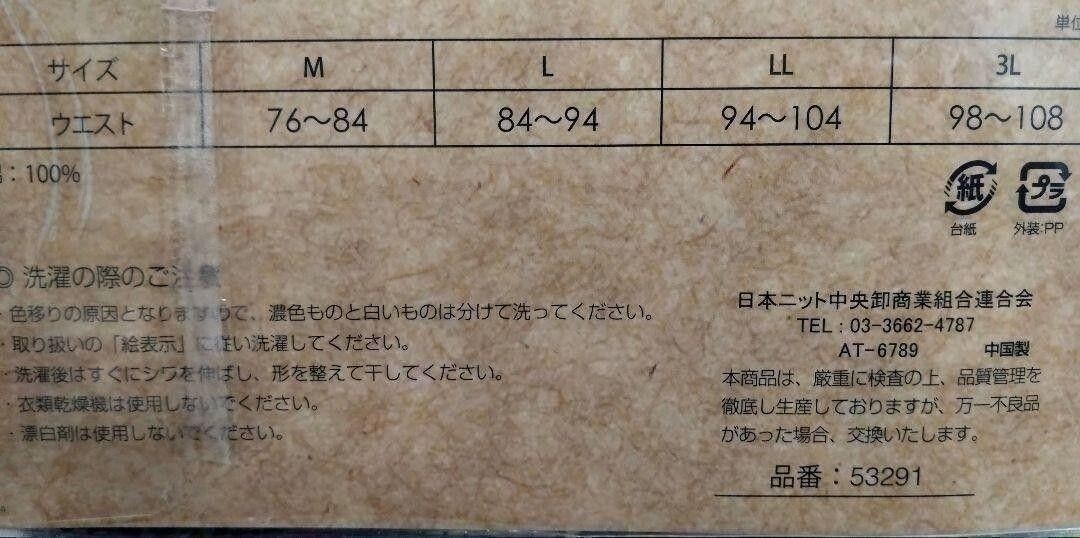 単位
サイズ M L LL 3L
ウエスト 76～84 84～94 94～104 98～108
：100%
紙 プラ
台紙 外装:PP
◎ 洗濯の際のご注意
・色移りの原因となりますので、濃色ものと白いものは分けて洗ってください。
・取り扱いの「絵表示」に従い洗濯してください。
・洗濯後はすぐにシワを伸ばし、形を整えて干してください。
・衣類乾燥機は使用しないでください。
・漂白剤は使用しないでください。
日本ニット中央卸商業組合連合会
TEL：03-3662-4787
AT-6789 中国製
本商品は、厳重に検査の上、品質管理を
徹底し生産しておりますが、万一不良品
があった場合、交換いたします。
品番：53291